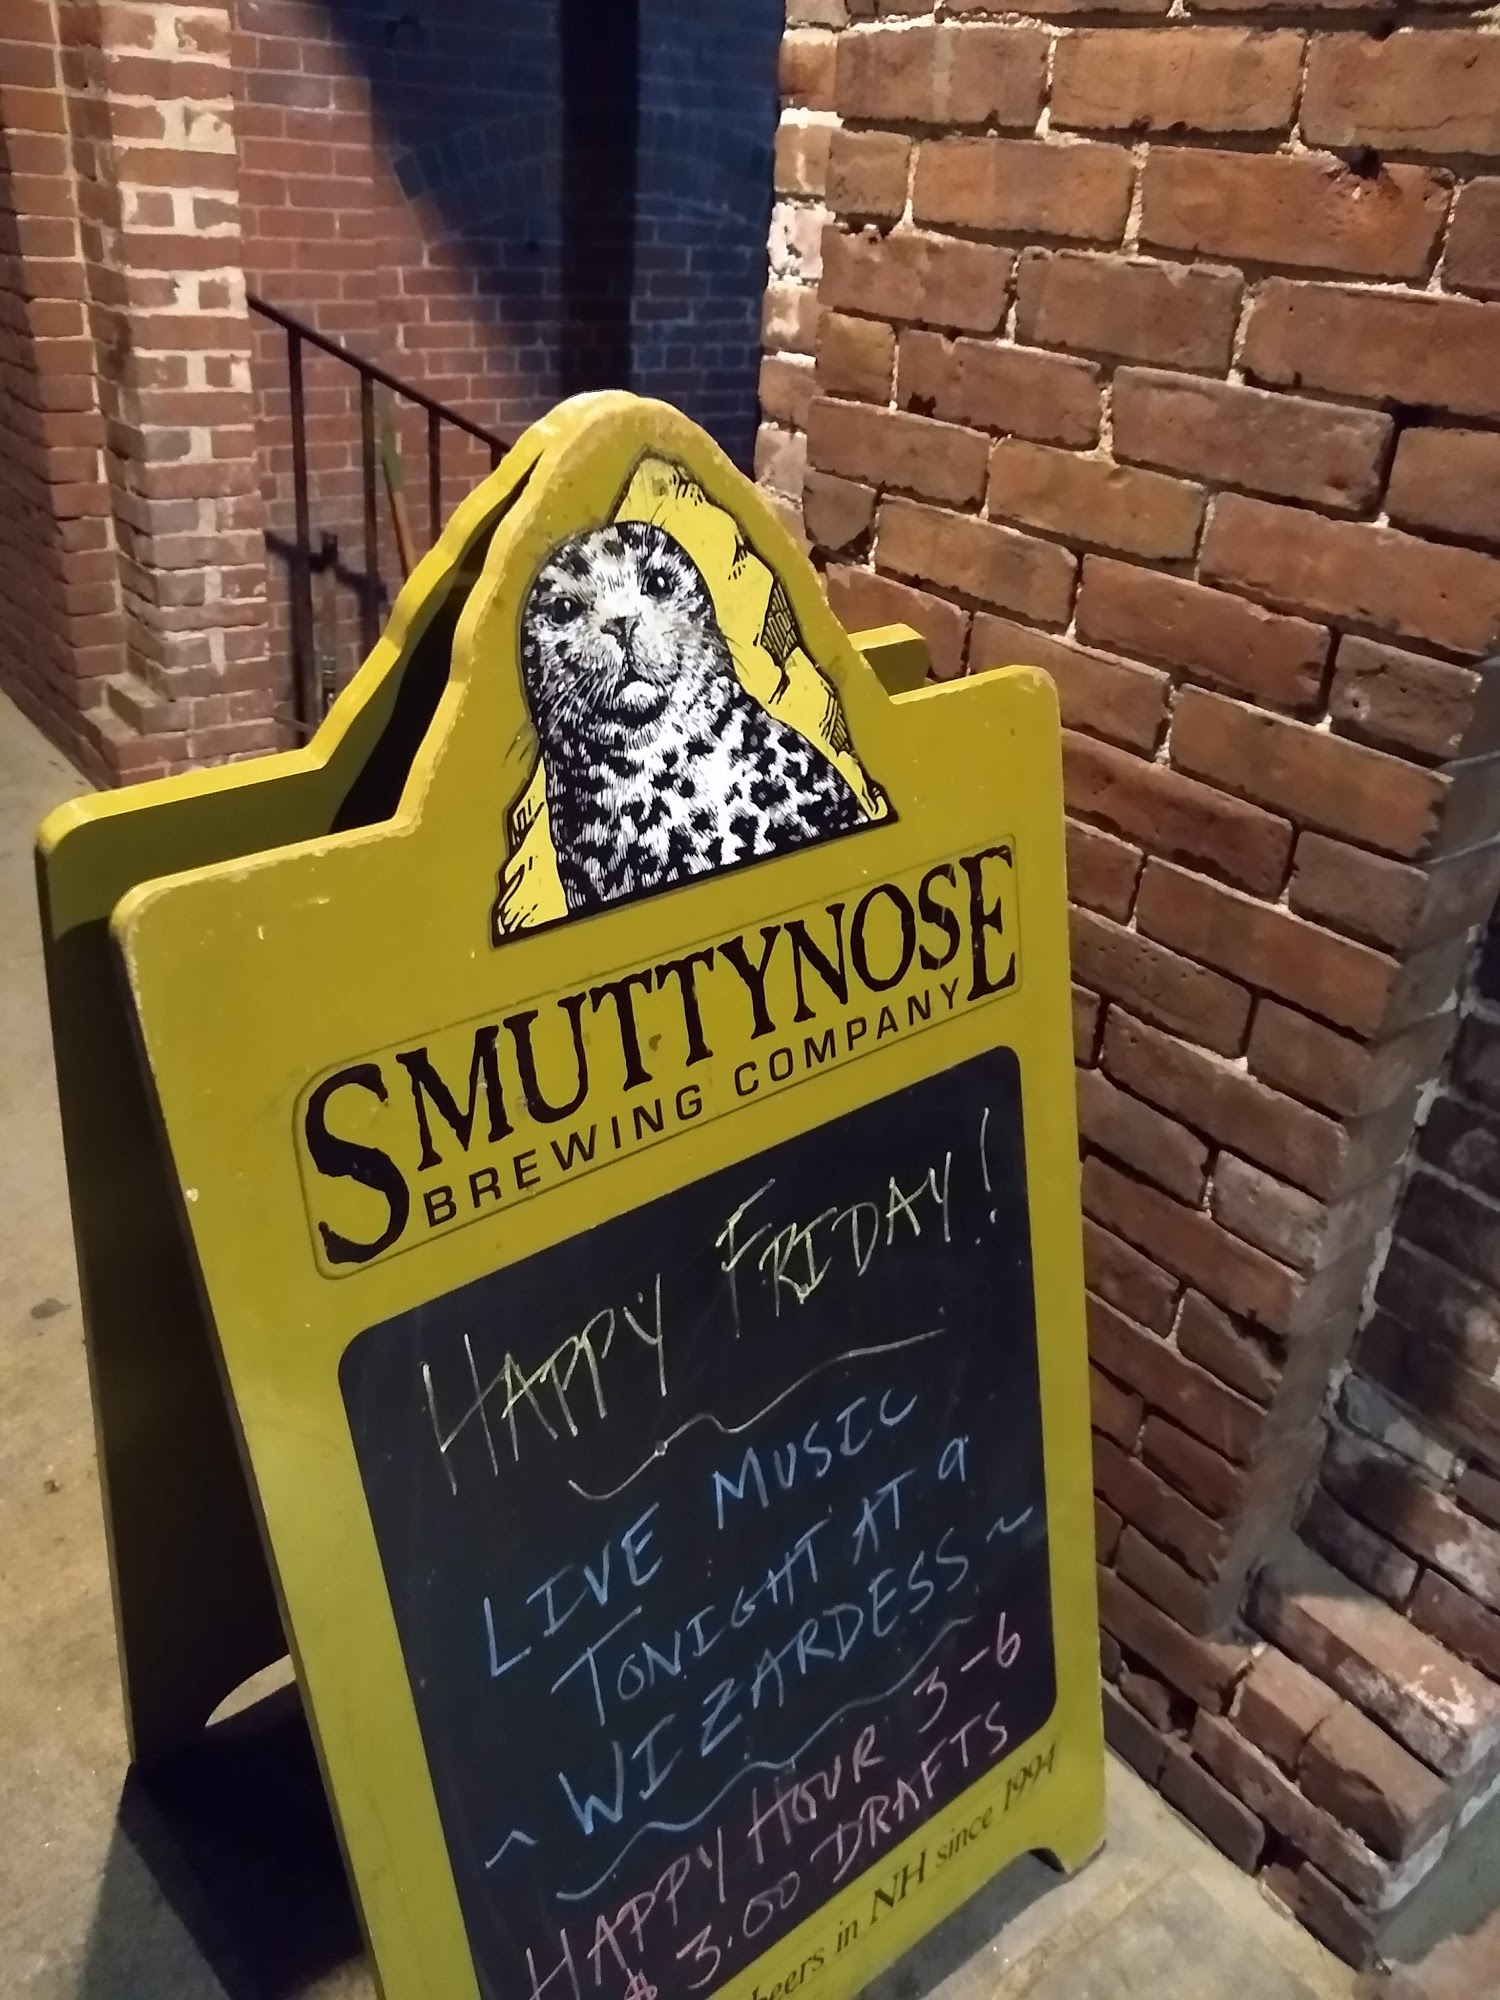 SMUTTYNOSE
BREWING COMPANY
HAPPY FRIDAY!
LIVE MUSIC
TONIGHT AT 9
~ WIZARDESS ~
HAPPY HOUR 3-6
$3.00 DRAFTS
beers in NH since 1994